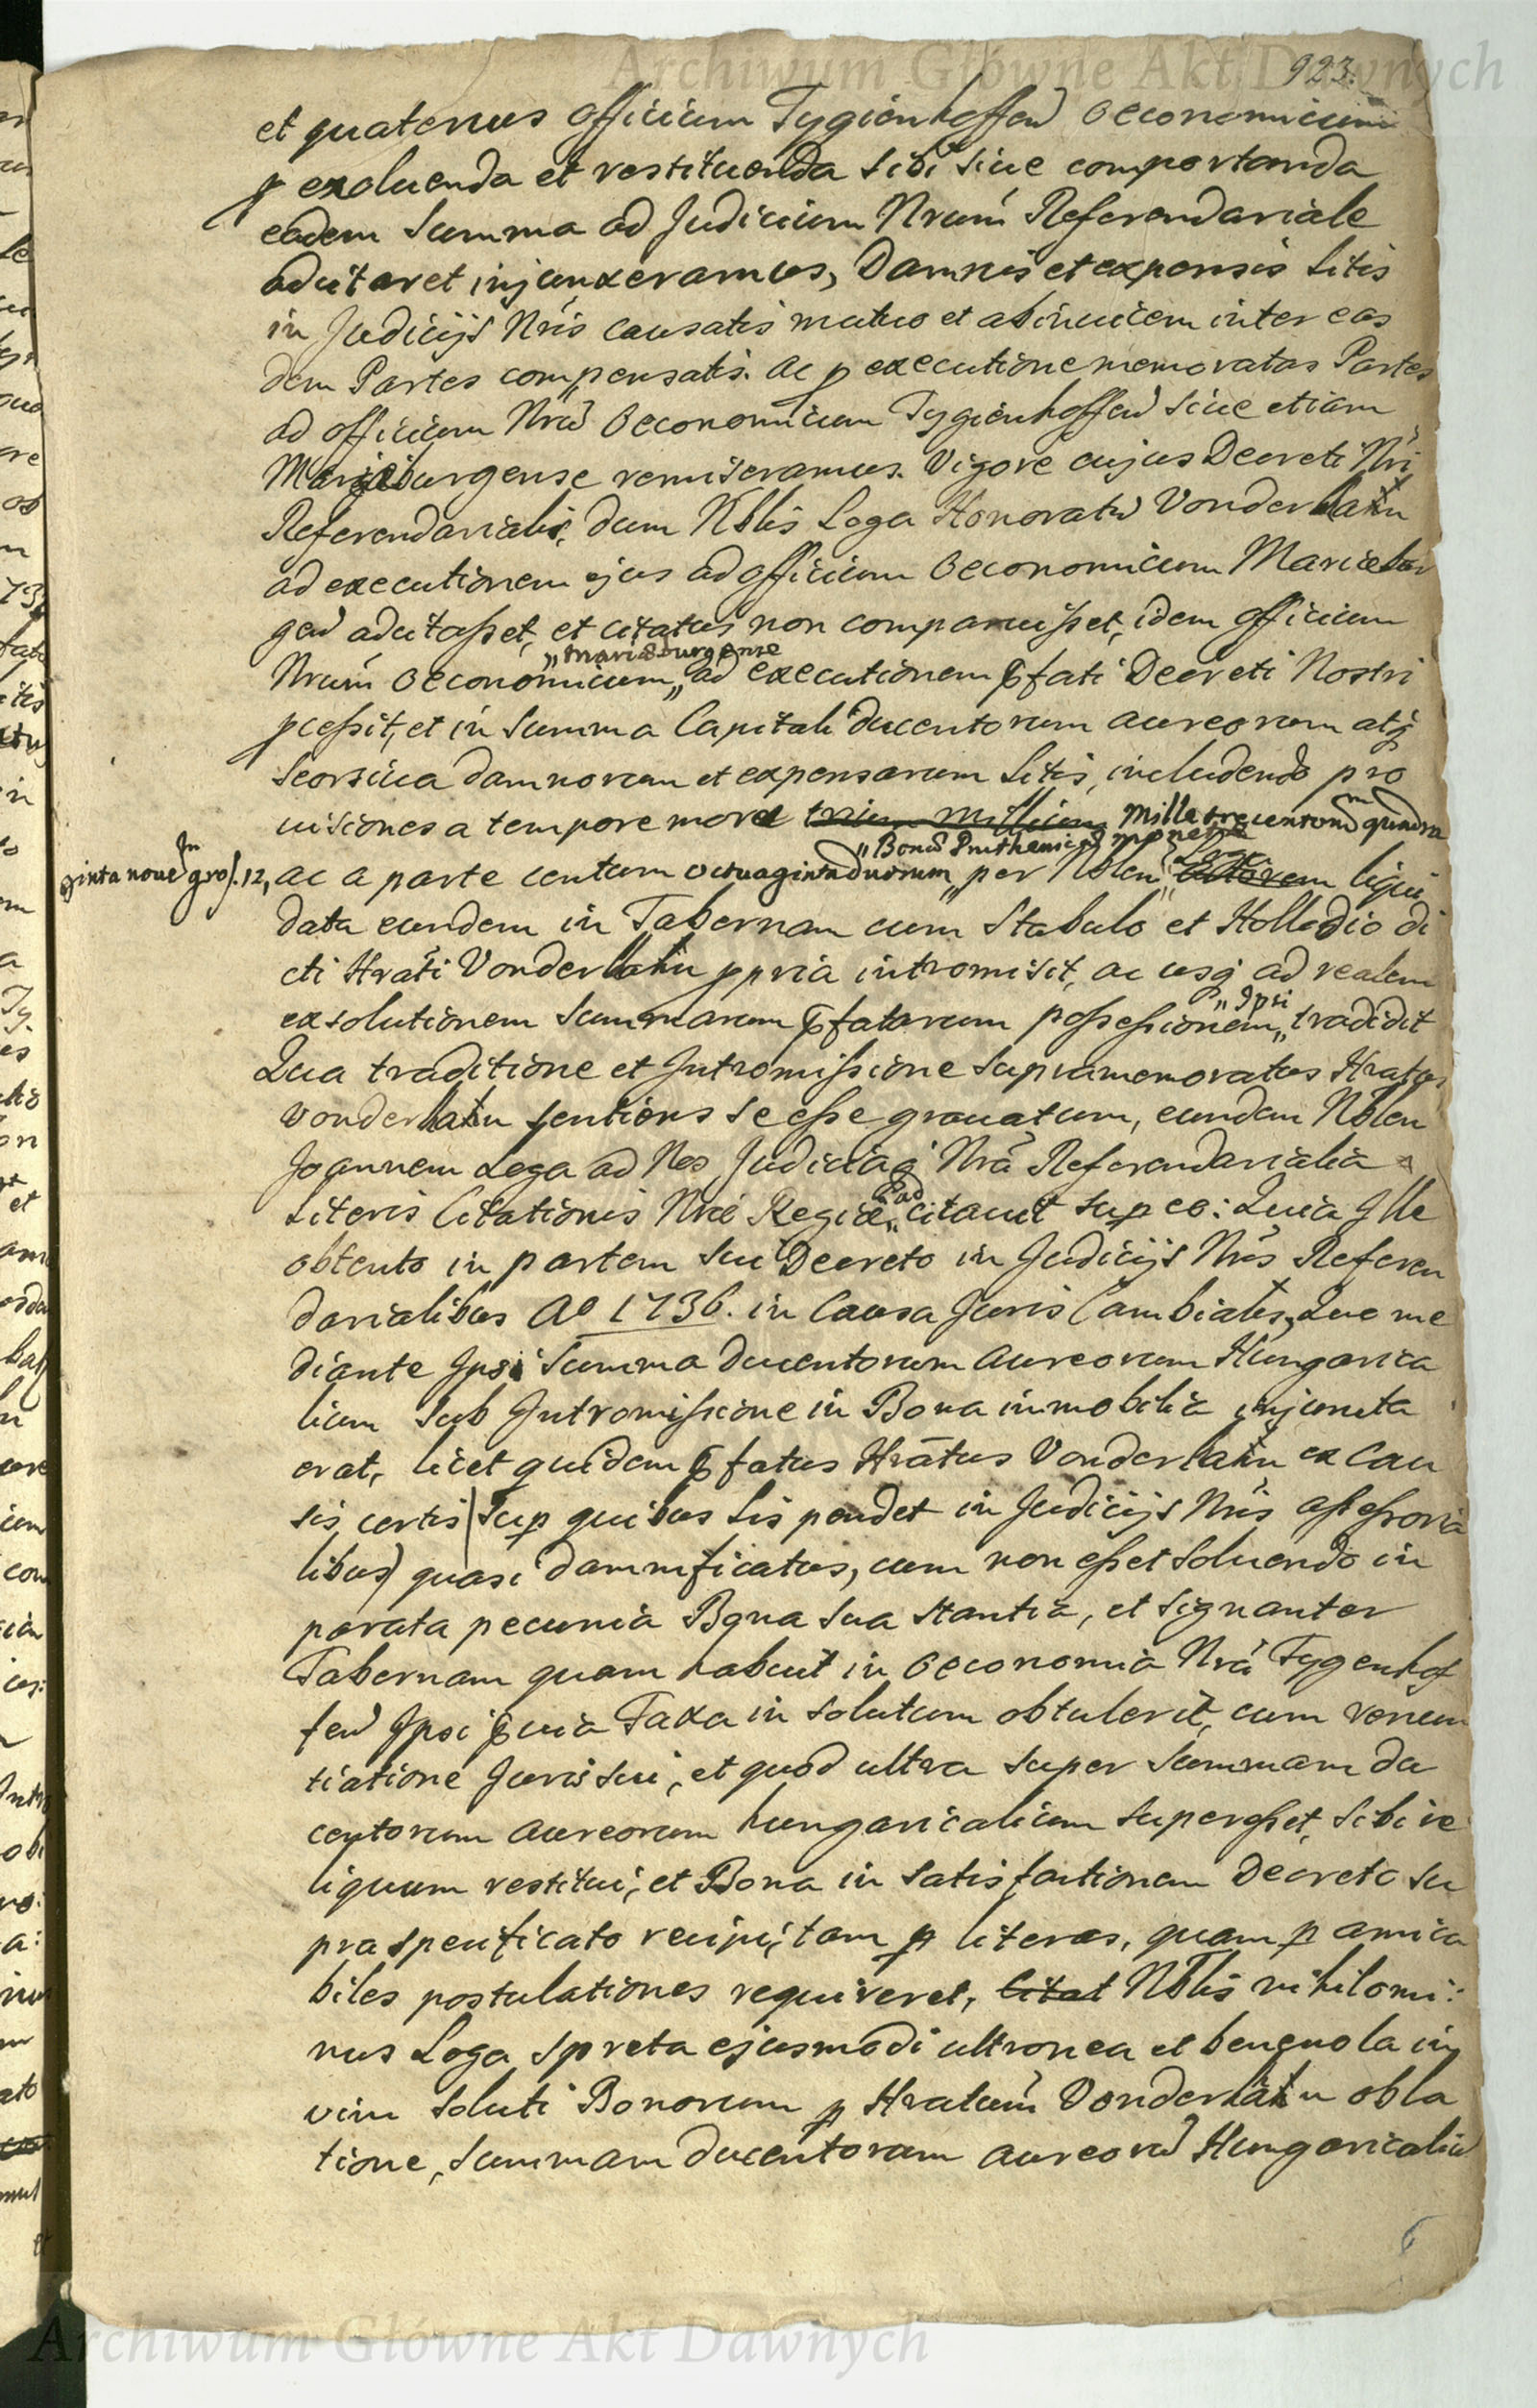 Archiwum Główne Akt Dawnych
923.
et quatenus officium Tygienhoffen̄ Oeconomicum
p exoluenda et restituenda sibi siue comportanda
eadem Summa ad Judicium Nrum̄ Referendariale
aditaret injunxeramus, Damnis et expensis Litis
in Judicijs Nris̄ causatis mutuo et abinuicem inter eas
dem Partes compensatis. Ac p executione memoratas Partes
ad officium Nrū Oeconomicum Tygienhoffen̄ siue etiam
Marieburgense remiseramus. Vigore cujus Decreti Nri̅
Referendarialis, dum Nblis Loga Honoratū Vonder
ad executionem ejus ad officium Oeconomicum Mariebur
gen̄ aditasset, et citatus non comparuisset, idem officium
„Marieburgense
Nrum̄ Oeconomicum„ ad executionem p̄fati Decreti Nostri
pcessit, et in Summa Capitali ducentorum aureorum atq̨
seorsiua damnorum et expensarum Litis, includendo pro
uisiones a tempore morae trium millium Mille trecentorum quadra
„Bonae Pruthenicae monetae
ginta nouem gros. 12, ac a parte centum octuaginta duorum„ per Nblen̄ Loga Actorem liqui
data eundem in Tabernam cum Stabulo et Hollodio di
cti Hrati̅ Vonder ppria intromisit, ac usq̨ ad realem
exsolutionem Summarum p̄fatarum possessionem „Ipsi„ tradidit
Qua traditione et Intromissione supramemoratus Hratus
Vonder sentiens se esse grauatum, eundem Nblen
Joannem Loga ad Nos Judiciaq̨ Nrā Referendarialia
Literis Citationis Nrae Regiae„ ad citauit sup eo: Quia Ille
obtento in partem sui Decreto in Judicijs Nris̄ Referen
darialibus Ao 1736. in Causa Juris Cambialis, Quo me
diante Ipsi Summa ducentorum aureorum Hungarica
lium sub Intromissione in Bona immobilia injuncta
erat, licet quidem p̄fatus Hrātus Vonder ex Cau
sis certis (sup quibus Lis pendet in Judicijs Nris̄ Assessoria
libus) quasi damnificatus, cum non esset soluendo in
parata pecunia Bona sua stantia, et signanter
Tabernam quam habuit in Oeconomia Nrā Tygenhof
fen̄ Ipsi p̄uia Taxa in solutum obtulerit, cum renun
tiatione Juris sui, et quod ultra super Summam du
centorum aureorum hungaricalium superesset, sibi re
liquum restitui, et Bona in satisfactionem Decreto su
praspecificato recipi, tam p literas, quam p amica
biles postulationes requireret, Citat Nblis nihilomi:
nus Loga spreta ejusmodi ultronea et beneuola in
vim soluti Bonorum p Hratum̄ Vonder obla
tione, Summam ducentorum aureorū Hungaricaliū
Archiwum Główne Akt Dawnych